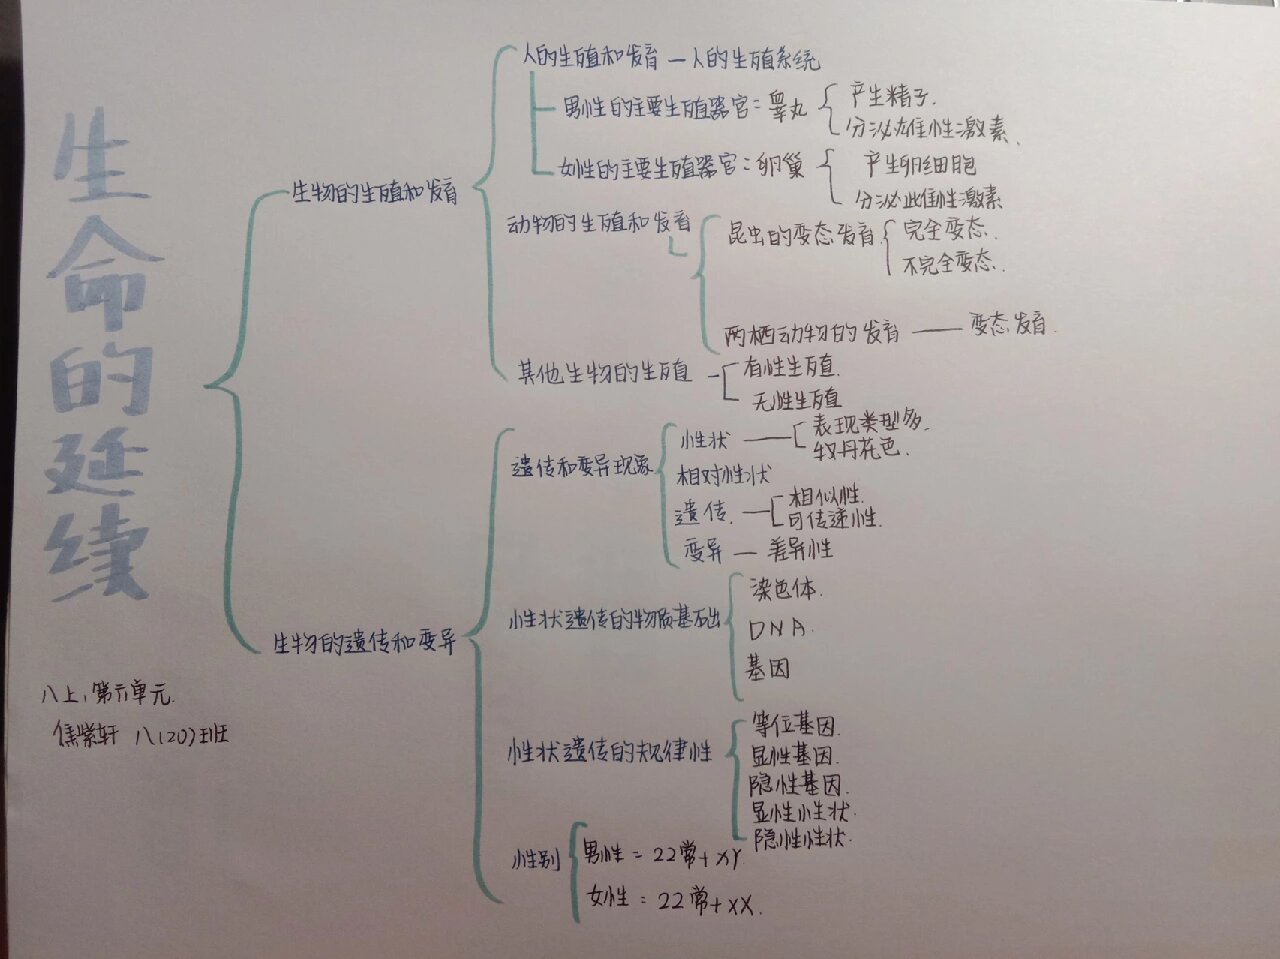 生命的延续
八上,第六单元.
焦紫轩 八(20)班
生物的生殖和发育
人的生殖和发育—人的生殖系统
男性的主要生殖器官:睾丸
产生精子.
分泌雄性激素.
女性的主要生殖器官:卵巢
产生卵细胞
分泌雌性激素
动物的生殖和发育
昆虫的变态发育
完全变态.
不完全变态.
两栖动物的发育——变态发育.
其他生物的生殖
有性生殖.
无性生殖
生物的遗传和变异
遗传和变异现象
性状
表现类型多.
牧丹花色.
相对性状
遗传.
相似性.
可传递性.
变异—差异性
性状遗传的物质基础
染色体.
DNA.
基因
性状遗传的规律性
等位基因.
显性基因.
隐性基因.
显性性状.
隐性性状.
性别
男性=22常+XY
女性=22常+XX.